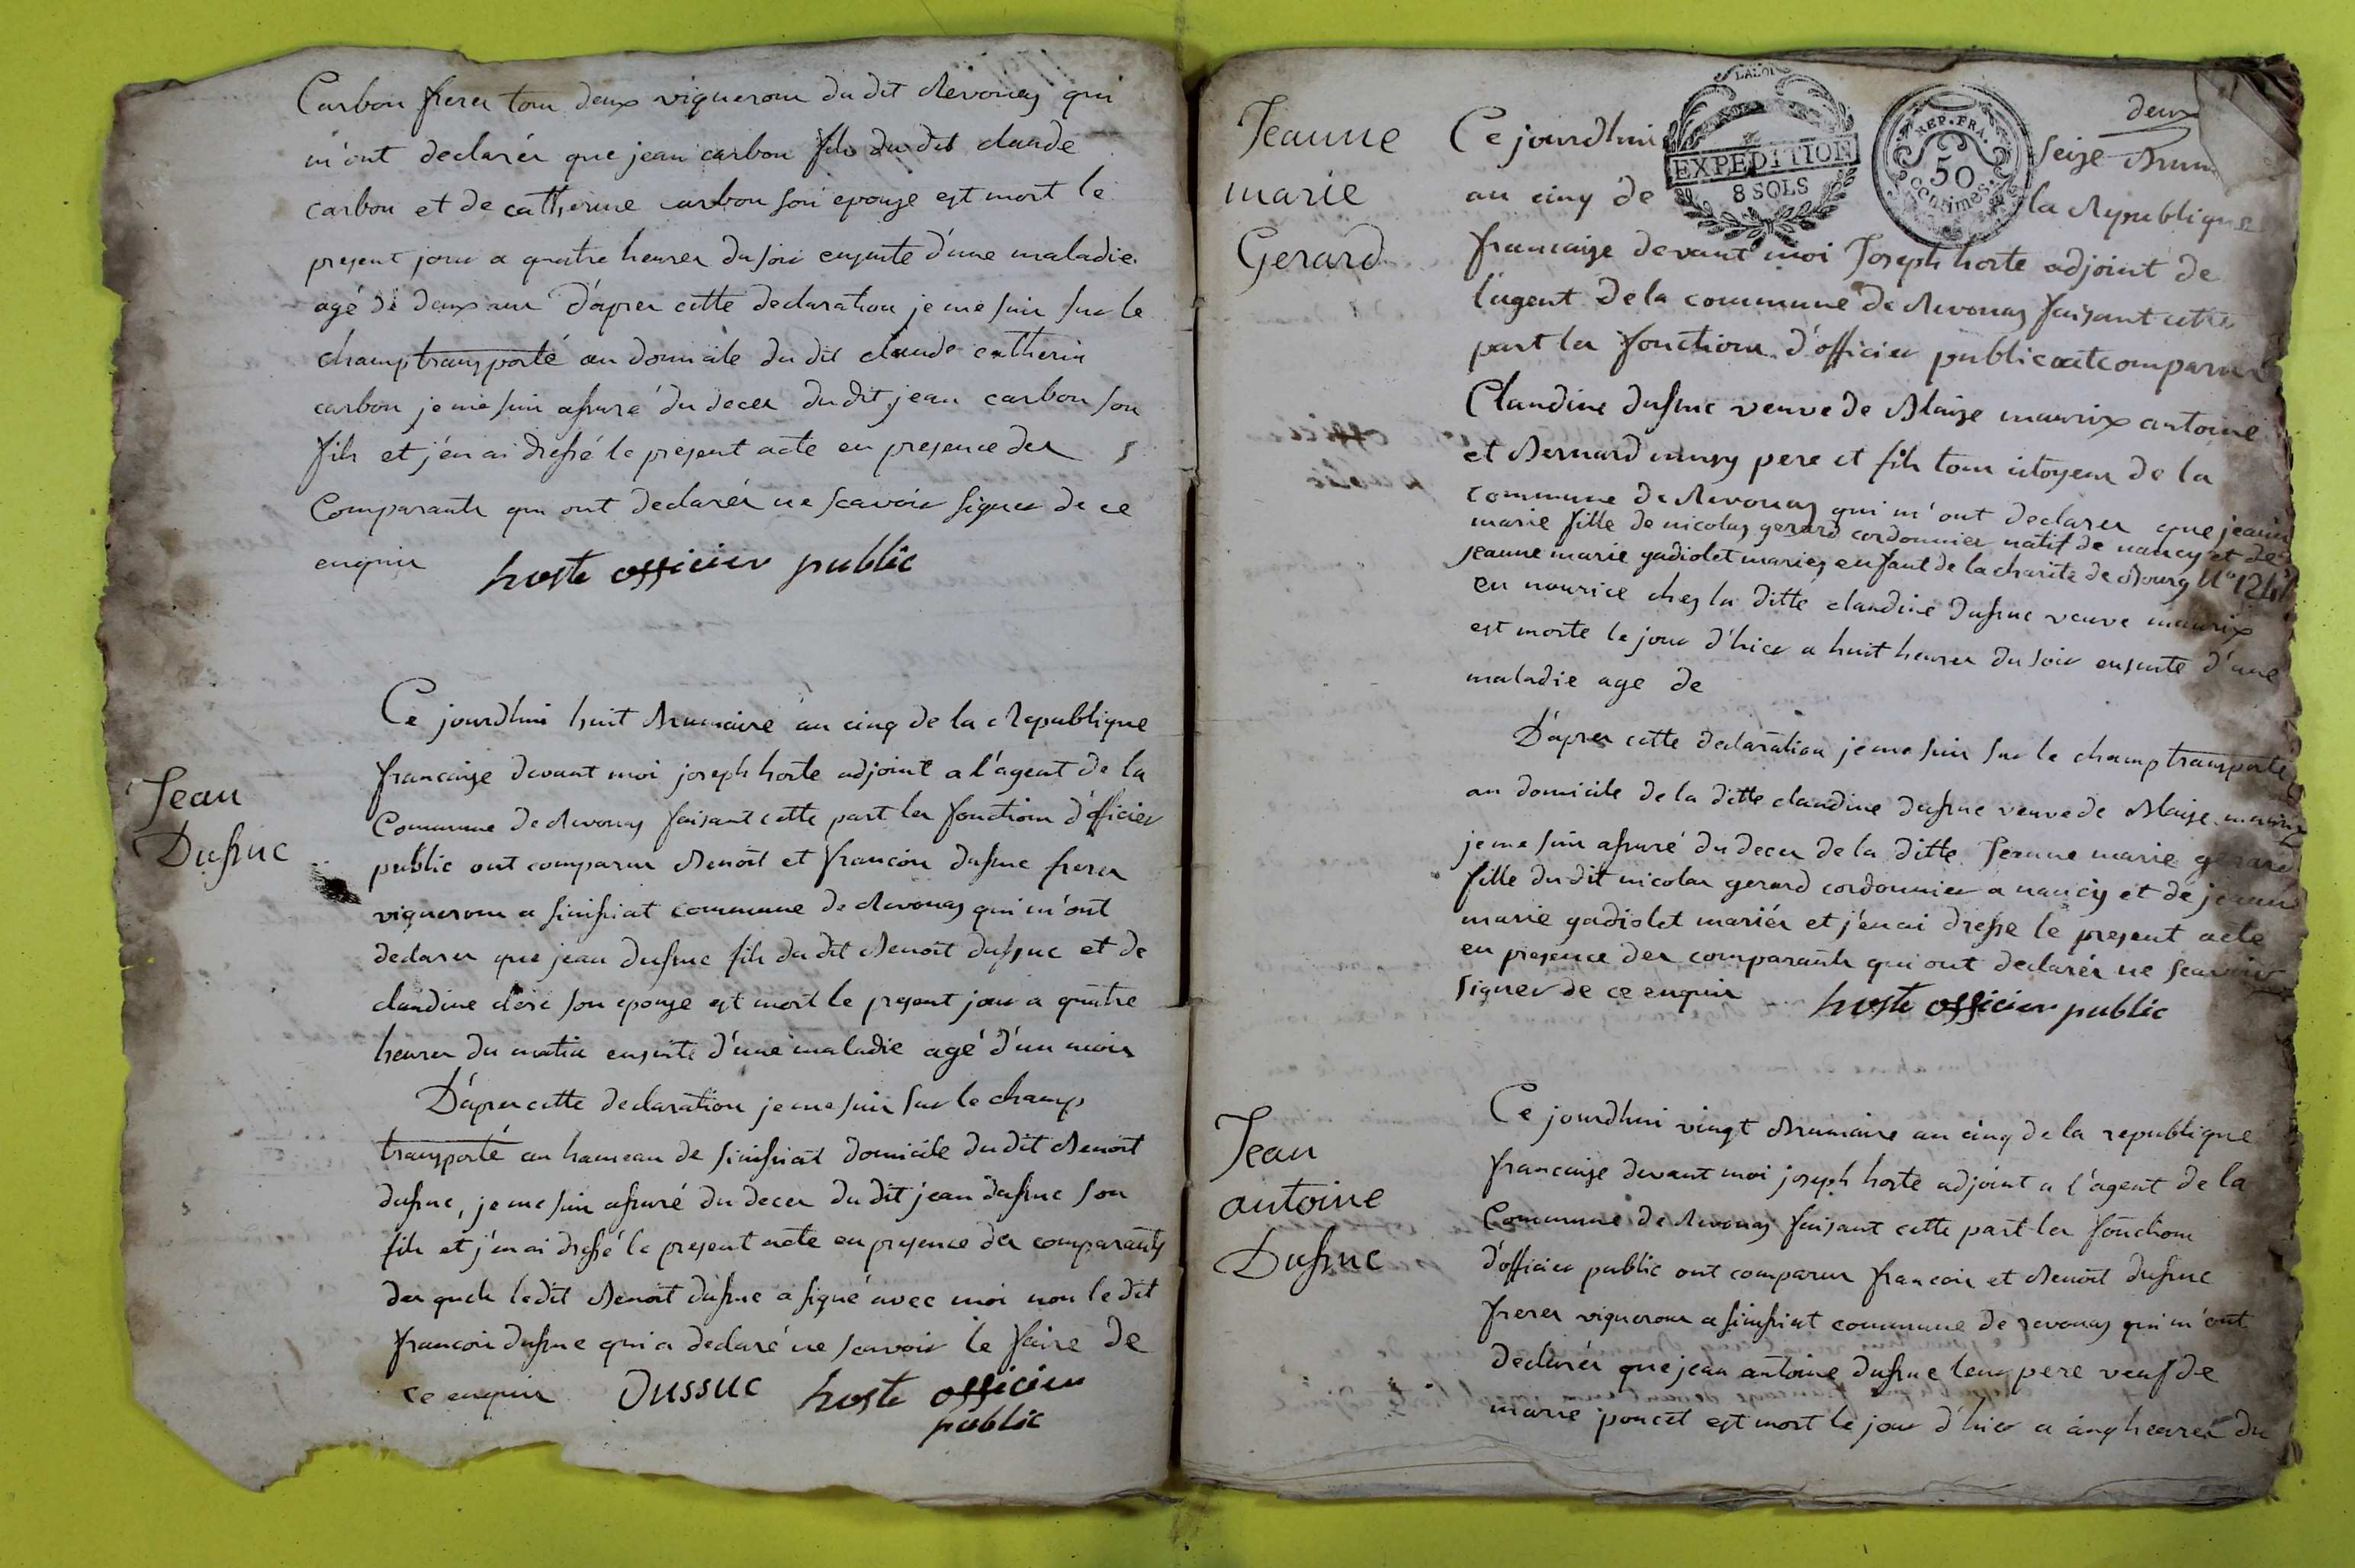 Carbon freres tous deux vignerons du dit Revonas qui
m'ont declarés que jean carbon fils du dit claude
carbon et de catherine carbon son epouse est mort le
present jour a quatre heures du soir ensuite d'une maladie
agé de deux ans d'apres cette declaration je me suis sur le
champ transporté au domicile du dit claude catherin
carbon je me suis assuré du deces du dit jean carbon son
fils et j'en ai dressé le present acte en presence des
Comparants qui ont declarés ne scavoir signer de ce
enquis hoste officier public
Jean
Dussuc
Ce jourdhui huit Brumaire an cinq de la Republique
francaise devant moi joseph hoste adjoint a l'agent de la
Commune de Revonas faisant cette part les fonctions d'officier
public ont comparus Benoit et francois dussuc freres
vignerons a simssiat commune de Revonas qui m'ont
declares que jean dussuc fils du dit Benoit dussuc et de
claudine son epouse est mort le present jour a quatre
heures du matin ensuite d'une maladie agé d'un mois
D'apres cette declaration je me suis sur le champ
transporté au hameau de simssiat domicile du dit Benoit
dussuc, je me suis assuré du deces du dit jean dussuc son
fils et j'en ai dressé le present acte en presence des comparants
des quels le dit Benoit dussuc a signé avec moi non le dit
francois dussuc qui a declaré ne scavoir le faire de
ce enquis DUSSUC hoste officier
public
deux
Jeanne
marie
Gerard
LA LOI
EXPEDITION
8 SOLS
REP. FRA.
50
centimes.
Ce jourdhui seize Brum
an cinq de la Republique
francaise devant moi Joseph hoste adjoint de
l'agent de la commune de Revonas faisant cette
part les fonctions d'officier public ont comparus
Claudine dussuc veuve de Blaise maurix antoine
et Bernard pere et fils tous citoyens de la
commune de Revonas qui m'ont declares que jeanne
marie fille de nicolas gerard cordonnier natif de nancy et de
jeanne marie gadiolet mariés enfant de la charité de Bourg N°
en nourice chez la ditte claudine dussuc veuve maurix
est morte le jour d'hier a huit heures du soir ensuite d'une
maladie age de
D'apres cette declaration je me suis sur le champ transporté
au domicile de la ditte claudine dussuc veuve de Blaise maurix
je me suis assuré du deces de la ditte Jeanne marie gerard
fille du dit nicolas gerard cordonnier a nancy et de jeanne
marie gadiolet mariés et j'en ai dressé le present acte
en presence des comparants qui ont declarés ne scavoir
signer de ce enquis hoste officier public
Jean
antoine
Dussuc
Ce jourdhui vingt Brumaire an cinq de la republique
francaise devant moi joseph hoste adjoint a l'agent de la
Commune de Revonas faisant cette part les fonctions
d'officier public ont comparus francois et Benoit dussuc
freres vignerons a simssiat commune de revonas qui m'ont
declarés que jean antoine dussuc leur pere veuf de
marie poncet est mort le jour d'hier a cinq heures du